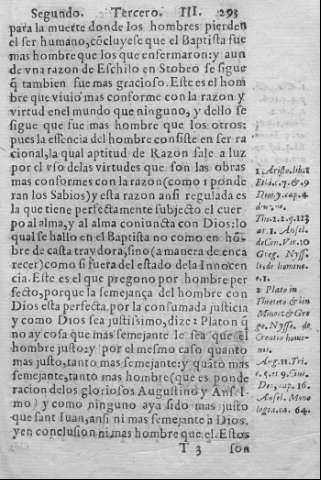 Segundo. Tercero. III. 293
para la muerte donde los hombres pierden
el ser humano, cōcluyese que el Baptista fue
mas hombre que los que enfermaron: y aun
de vna razon de Eschilo en Stobeo se sigue
q̃ tambien fue mas gracioso. Este es el hom
bre que viuio mas conforme con la razon y
virtud en el mundo que ninguno, y dello se
sigue que fue mas hombre que los otros:
pues la essencia del hombre consiste en ser ra
cional, la qual aptitud de Razon sale a luz
por el vso de las virtudes que son las obras
mas conformes con la razon (como 1 ponde
ran los Sabios) y esta razon ansi regulada es
la que tiene perfectamente subjecto el cuer
po al alma, y al alma conjuncta con Dios: lo
qual se hallo en el Baptista no como en hō-
bre de casta traydora, sino (a manera de enca
recer) como si fuera del estado dela Innocen
cia. Este es el que pregono por hombre per
fecto, porque la semejança del hombre con
Dios esta perfecta por la consumada justicia
y como Dios sea justissimo, dize 2 Platon q̃
no ay cosa que mas semejante le sea que el
hombre justo: y por el mesmo caso quanto
mas justo, tanto mas semejante: y quāto mas
semejante, tanto mas hombre (que es ponde
racion delos gloriosos Augustino y Ansel-
mo) y como ninguno aya sido mas justo
que sant Iuan, ansi ni mas semejante a Dios,
y en conclusion ni mas hombre que el. Estos
T 3 son
1. Aristo. lib. 1
Etic. c. 7. & 9
Dio. 7. cap. 4
de
Tho. 1. 2. q. 113
ar. 1. Ansel.
de Con. Vir. 10
Greg. Nyss.
li. de homine.
c. 1.
2 Plato in
Theeteto & in
Minoe & Gre
go. Nysse. de
Creatio homi-
nis.
Aug. 11. Tri.
c. 5. et 9. Ciui.
Dei, cap. 16.
Ansel. Mono
logia. ca. 64.